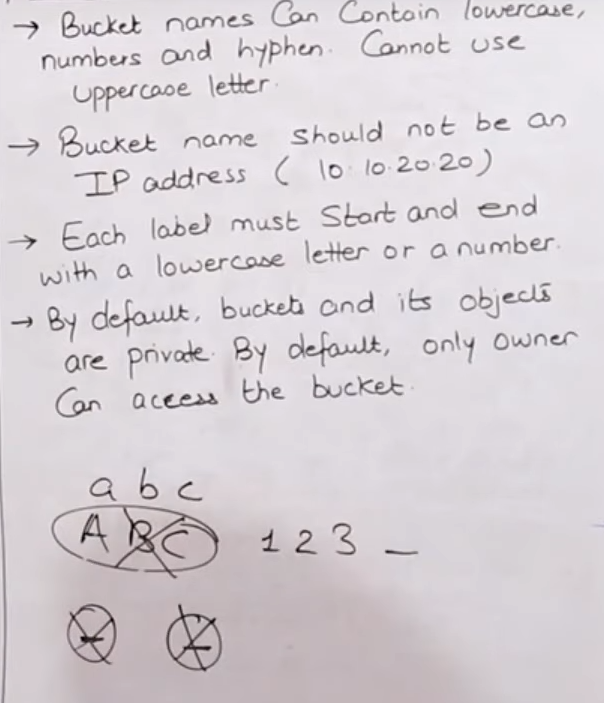 → Bucket names Can Contain lowercase,
numbers and hyphen. Cannot use
Uppercase letter.
→ Bucket name should not be an
IP address ( 10.10.20.20)
→ Each label must Start and end
with a lowercase letter or a number.
→ By default, buckets and its objects
are private. By default, only owner
Can access the bucket.
a b c
A B C 1 2 3 _